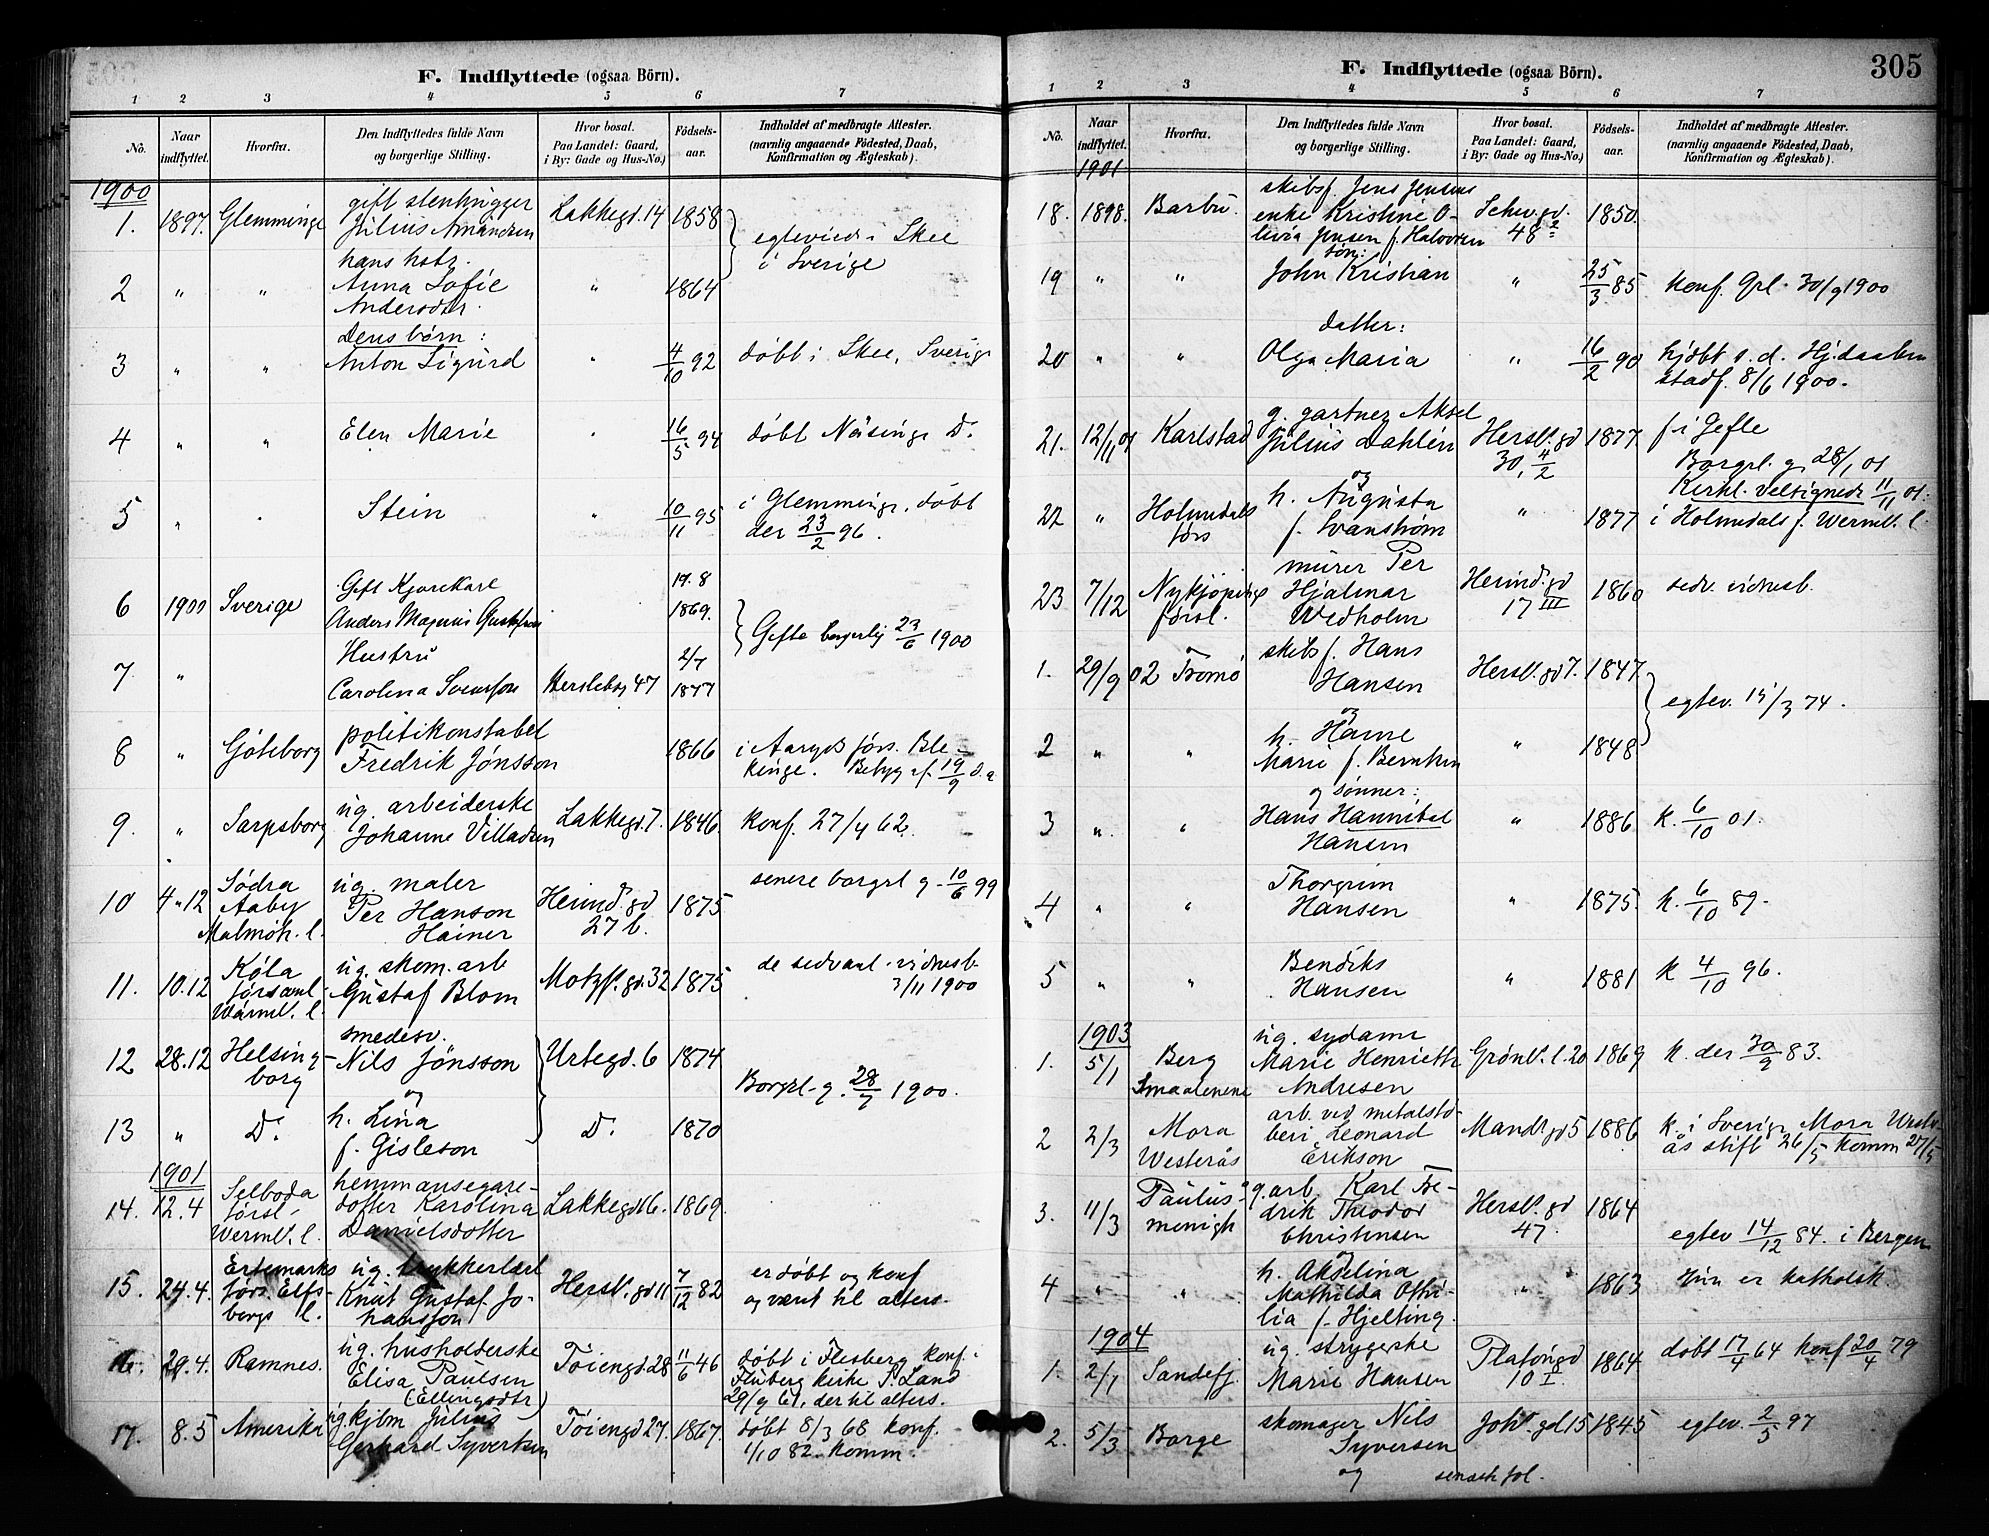 F. Indflyttede (ogsaa Börn).
1 2 3 4 5 6 7
No. Naar indflyttet. Hvorfra. Den Indflyttedes fulde Navn og borgerlige Stilling. Hvor bosat. Paa Landet: Gaard, i By: Gade og Hus-No.) Födsels-aar. Indholdet af medbragte Attester. (navnlig angaaende Födested, Daab, Konfirmation og Ægteskab).
1900
gift stenhugger
1. 1897. Glemminge Julius Amundsen Lakkegd. 14 1858 egteviede i Skee
i Sverige
hans hstr.
2 " " Anna Sofie " 1864
Andersdtr.
Deres børn:
3 " " Anton Sigurd " 4/10 92 døbt i Skee, Sverige
4 " " Elen Marie " 16/5 94 døbt Näsinge Do
5 " " Stein " 10/11 95 i Glemminge, døbt
der 23/2 96.
Gift Kjørekarl 19.8
6 1900 Sverige Anders Magnus Gustafson 1869.
Gifte borgerlig 23/6 1900
Hustru 2/7
7 " Carolina Svensson Herslebsg 47 1877
politikonstabel
8 " Göteborg Fredrik Jønsson 1866 i Aaryds førs. Ble-
kinge. Bebyg. af. 19/9 d.a
ug. arbeiderske
9. " Sarpsborg Johanne Villadsen Lakkegd. 7. 1846. konf. 27/4 62.
Södra ug. maler senere borgrl g. 10/6 99
10 4.12 Aaby Per Hanson Heimd. gd 1875
Malmöh. l. Hainer 27 b.
Köla ug. skom. arb de sedvanl. vidnesb.
11. 10.12 församl. Gustaf Blom Motzf. gd. 32 1875 3/11 1900
Wärml. l.
smedesv.
12 28.12 Helsing- Nils Jönsson Urtegd. 6 1874
borg og Borgrl. g. 28/7 1900.
13 " Do h. Lina Do 1870
f. Gisleson
1901
Selboda hemmansegare-
14. 12.4 försl. dotter Karolina Lakkegd 16. 1869.
Wermlv. l. Danielsdotter
Ertemarks ug. trykkerlærl er döbt og konf
15. 24.4. førs. Elfs- Knut Gustaf Jo- Hersl. gd 11 7/12 82 og vært til alters.
bergs l. hansson
ug. husholderske døbt i Flesberg, konf. i
16. 29.4. Ramnes. Elisa Paulsen Töiengd 28 11/6 46 Fluberg kirke S. Land
(Ellingsdtr) 29/9 61, der til alters.
ug kjbm Julius døbt 8/3 68 konf.
17. 8.5 Amerika Gerhard Syvertsen Töiengd 27. 1867. 1/10 82. Komm.
F. Indflyttede (ogsaa Börn). 305
1 2 3 4 5 6 7
No. Naar indflyttet. Hvorfra. Den Indflyttedes fulde Navn og borgerlige Stilling. Hvor bosat. Paa Landet: Gaard, i By: Gade og Hus-No.) Födsels-aar. Indholdet af medbragte Attester. (navnlig angaaende Födested, Daab, Konfirmation og Ægteskab).
1901
skibsf. Jens Jensens
18. 1898. Barbu. enke Kristine O- Schw. gd. 1850.
livia Jensen f. Halvorsen 48 2
søn:
19 " " John Kristian " 25/3 85 konf. Grl. 30/9 1900
datter:
20 " " Olga Maria " 16/2 90 hjdøbt s. d. Hj.daaben
stadf. 8/6 1900.
g. gartner Aksel
21. 12/11 01 Karlstad Julius Dahlén Hersl. gd 1877 f i Gefle
30, 4/2 Borgrl. g. 28/1 01
og Kirkl. velsignede 11/11 01.
22 " Holmedals h. Augusta " 1877 i Holmedals f. Wermlv. l.
førs f. Svanstrøm
murer Per
23 7/12 Nykjøpings Hjalmar Heimd. gd 1860 sedv. vidnesb.
försl. Wedholm 17 III
skibsf. Hans
1. 29/9 02 Tromø Hansen Hersl. gd 7. 1847
egtev. 15/3 74.
og
2 " " h. Hanne " 1848
Marie f. Berntsen
og sønner:
3 " " Hans Hannibal " 1886 k. 6/10 01.
Hansen
4 " " Thorgrim " 1875. k. 6/10 89.
Hansen
5 " " Bendiks " 1881 k 4/10 96.
Hansen
1903 ug. sydame
1. 5/1 Berg Marie Henriette Grønl. l. 20 1869 k. der 30/9 83.
Smaalenene Andresen
arb. ved metalstø-
2 2/3 Mora beri Leonard Mandl gd 5 1886 k. i Sverige Mora Vester-
Westerås Erikson ås stift 26/5 Komm 27/5
Paulus g. arb. Karl Fre-
3. 11/3 menigh drik Theodor Hersl. gd 1864
Christensen 47. egtev 14/12 84. i Bergen
og
4 " " h. Akselina " 1863 Hun er katholsk
Mathilda Othi-
lia f. Hjelting.
1904 ug. strygerske
1. 2/1 Sandefj. Marie Hansen Platøugd 1864 døbt 17/4 64 konf 20/4 79
10 I
2. 5/3 Borge skomager Nils Joh. gd 15 1845 egtev. 2/5 97
Syversen
og se næste fol.